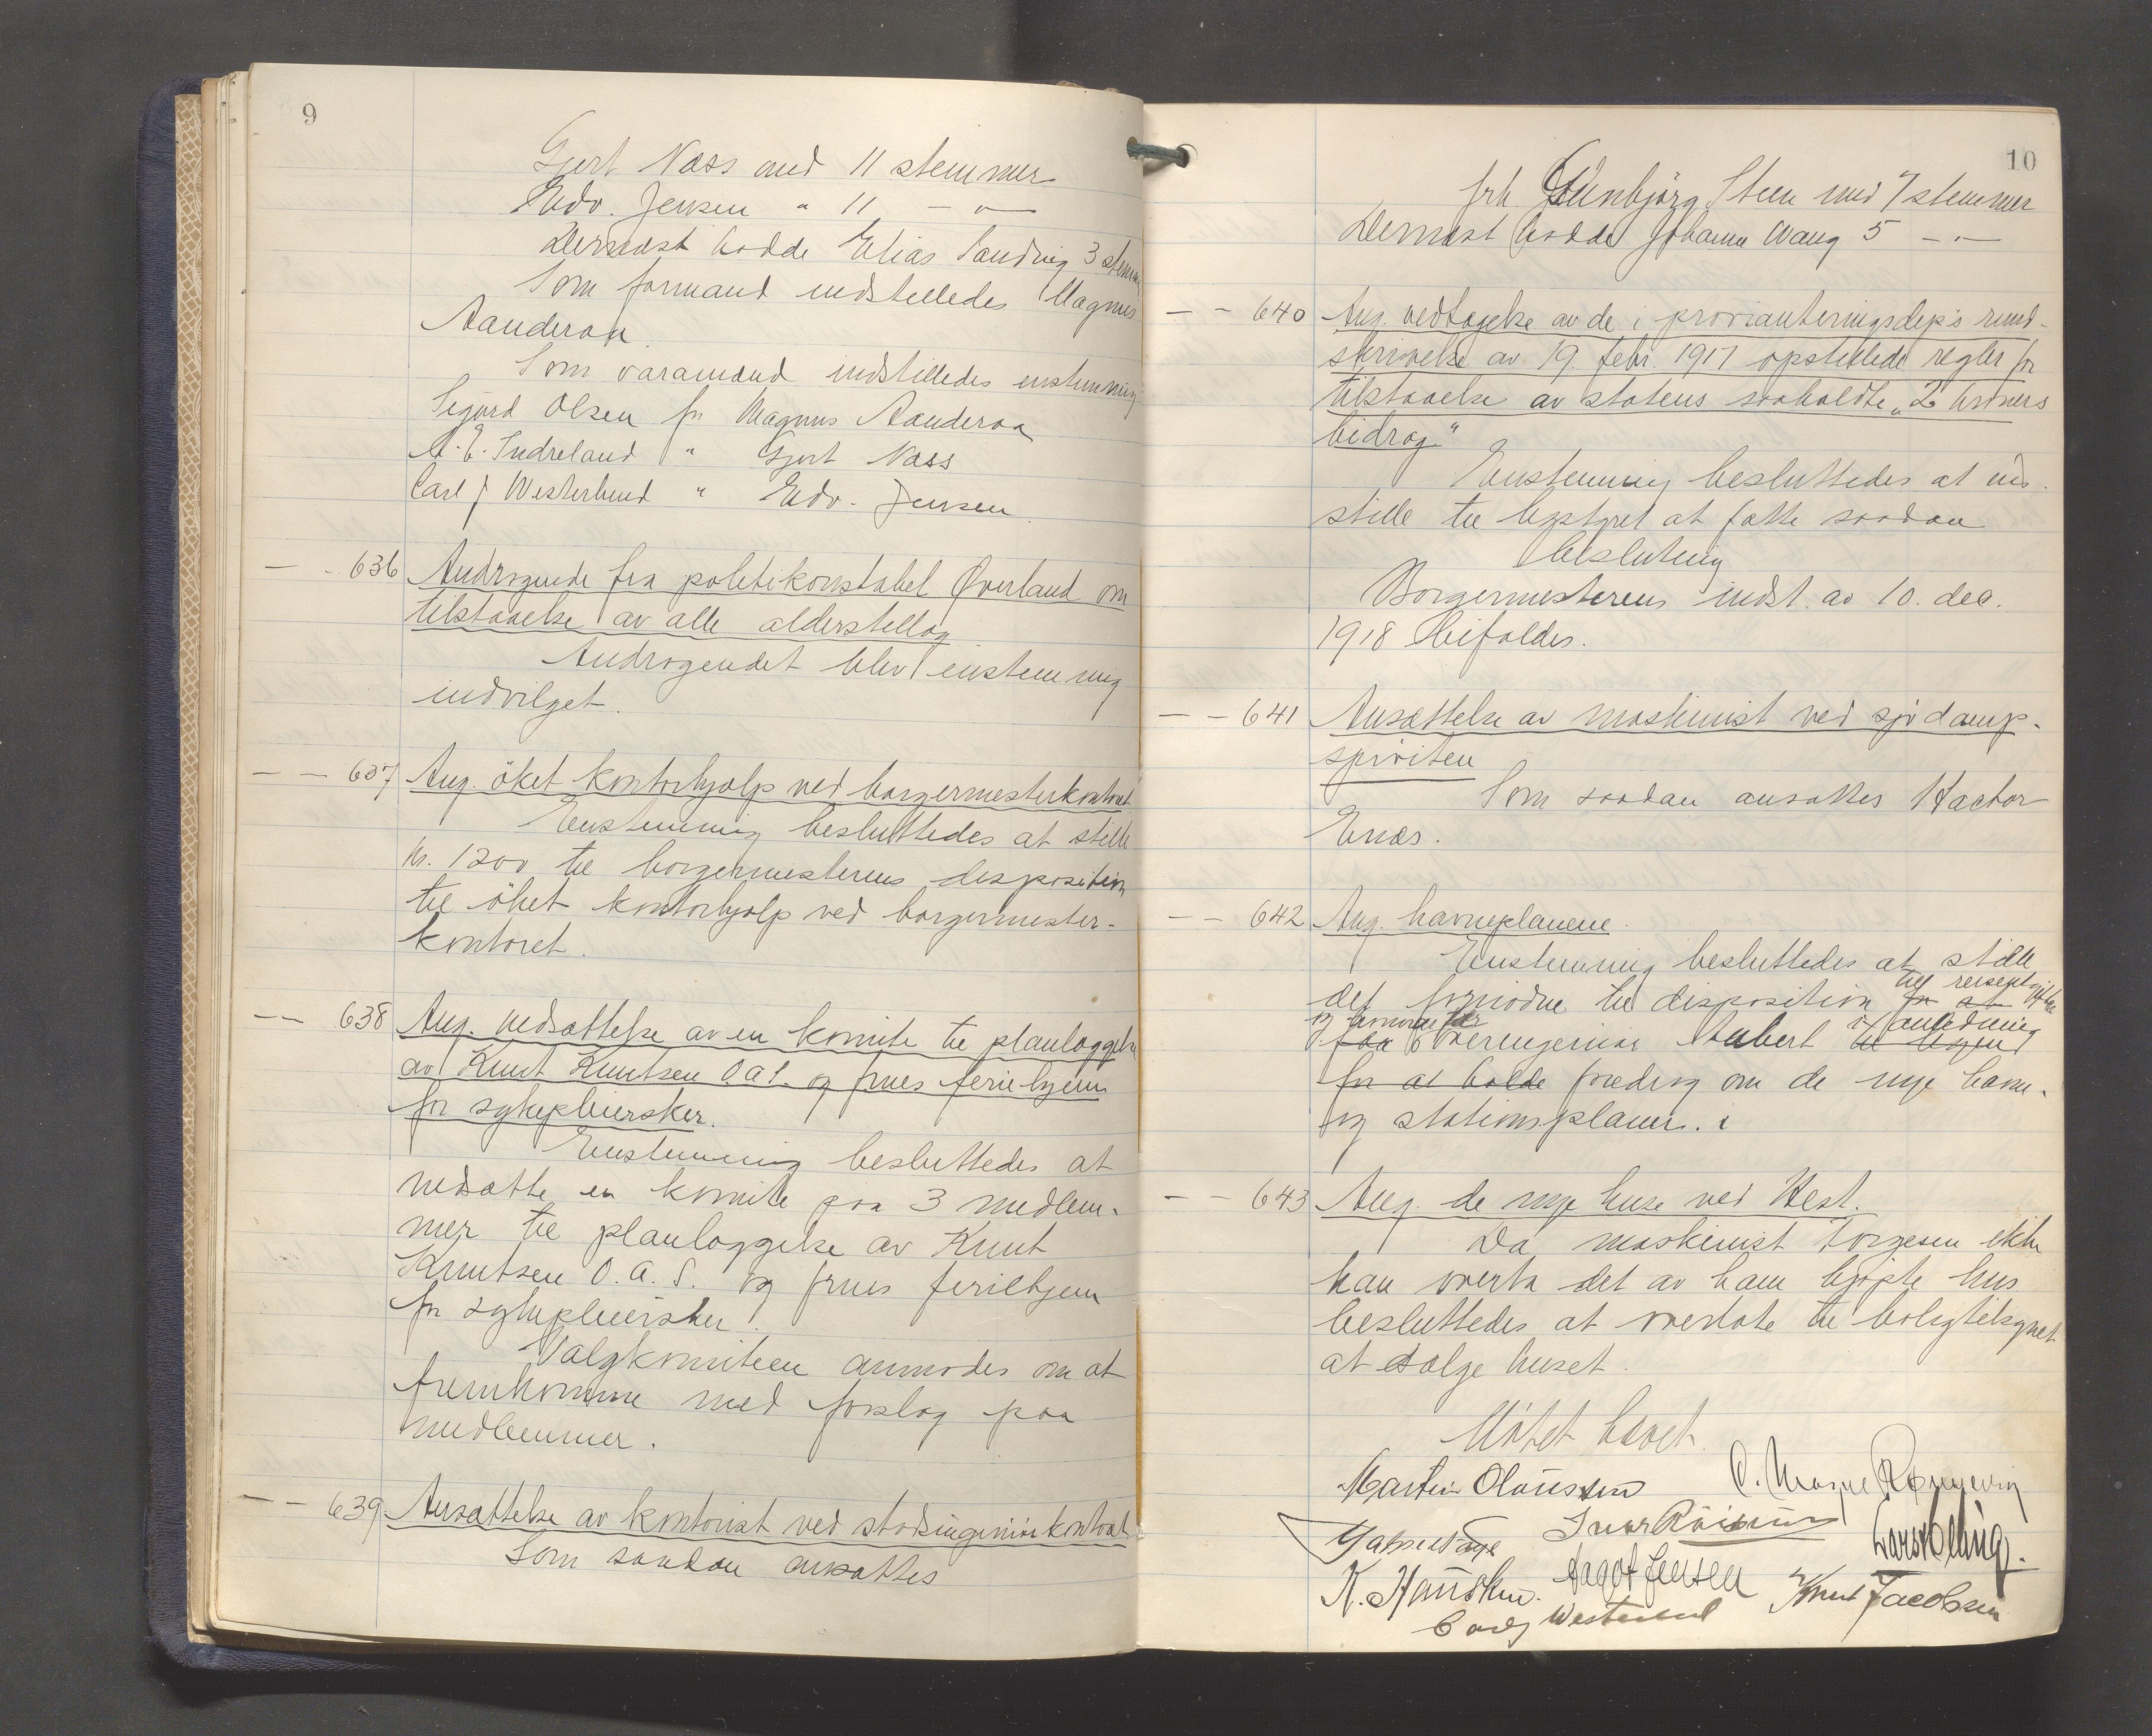 9
Gjert Næss med 11 stemmer
Edv. Jensen " 11 — " —
Dernæst hadde Elias Sandvig 3 stemmer
Som formand indstilledes Magnus
Aanderaa.
Som varamænd indstilledes enstemmig
Sigurd Olsen for Magnus Aanderaa
A. E. Indreland " Gjert Næss
Carl J Westerlund " Edv. Jensen.
— - 636 Andragende fra politikonstabel Øverland om
tilstaaelse av alle alderstillæg
Andragendet blev enstemmig
indvilget.
— — 637 Ang. øket kontorhjælp ved borgermesterkontoret
Enstemmig besluttedes at stille
kr. 1200 til borgermesterens disposition
til øket kontorhjælp ved borgermester-
kontoret.
— — 638 Ang. nedsættelse av en komite til planlæggelse
av Knut Knutsen O.A.S. og frues feriehjem
for sykepleiersker.
Enstemmig besluttedes at
nedsætte en komite paa 3 medlem-
mer til planlæggelse av Knut
Knutsen O.A.S. og frues feriehjem
for sykepleiersker.
Valgkomiteen anmodes om at
fremkomme med forslag paa
medlemmer.
— — 639 Ansættelse av kontorist ved stadsingeniørkontoret
Som saadan ansattes
10
frk. Steen med 7 stemmer
Dernæst hadde Johanne Waug 5 — " —
— — 640 Ang. vedtagelse av de i provianteringsdep's rund-
skrivelse av 19. febr. 1917 opstillede regler for
tilstaaelse av statens saakaldte „2 kroners
bidrag"
Enstemmig besluttedes at ind-
stille til bystyret at fatte saadan
beslutning
Borgermesterens indst. av 10. dec.
1918 bifaldes.
— — 641 Ansættelse av maskinist ved sjødamp-
sprøiten
Som saadan ansattes Hactor
Enæs.
— — 642 Ang. havneplanene.
Enstemmig besluttedes at stille
til reiseutgifter
det fornødne til disposition for at
og honorar for
faa overingeniør Aubert i anledning
for at holde foredrag om de nye havne-
og stationsplaner.
— — 643 Ang. de nye huse ved Vest.
Da maskinist Torgesen ikke
kan overta det av ham kjøpte hus
besluttedes at overlate til boligtilsynet
at sælge huset.
Møtet hævet.
Martin Olaussen
K. Hausken. Aagot Jensen Knut Jacobsen
Carl J Westerlund